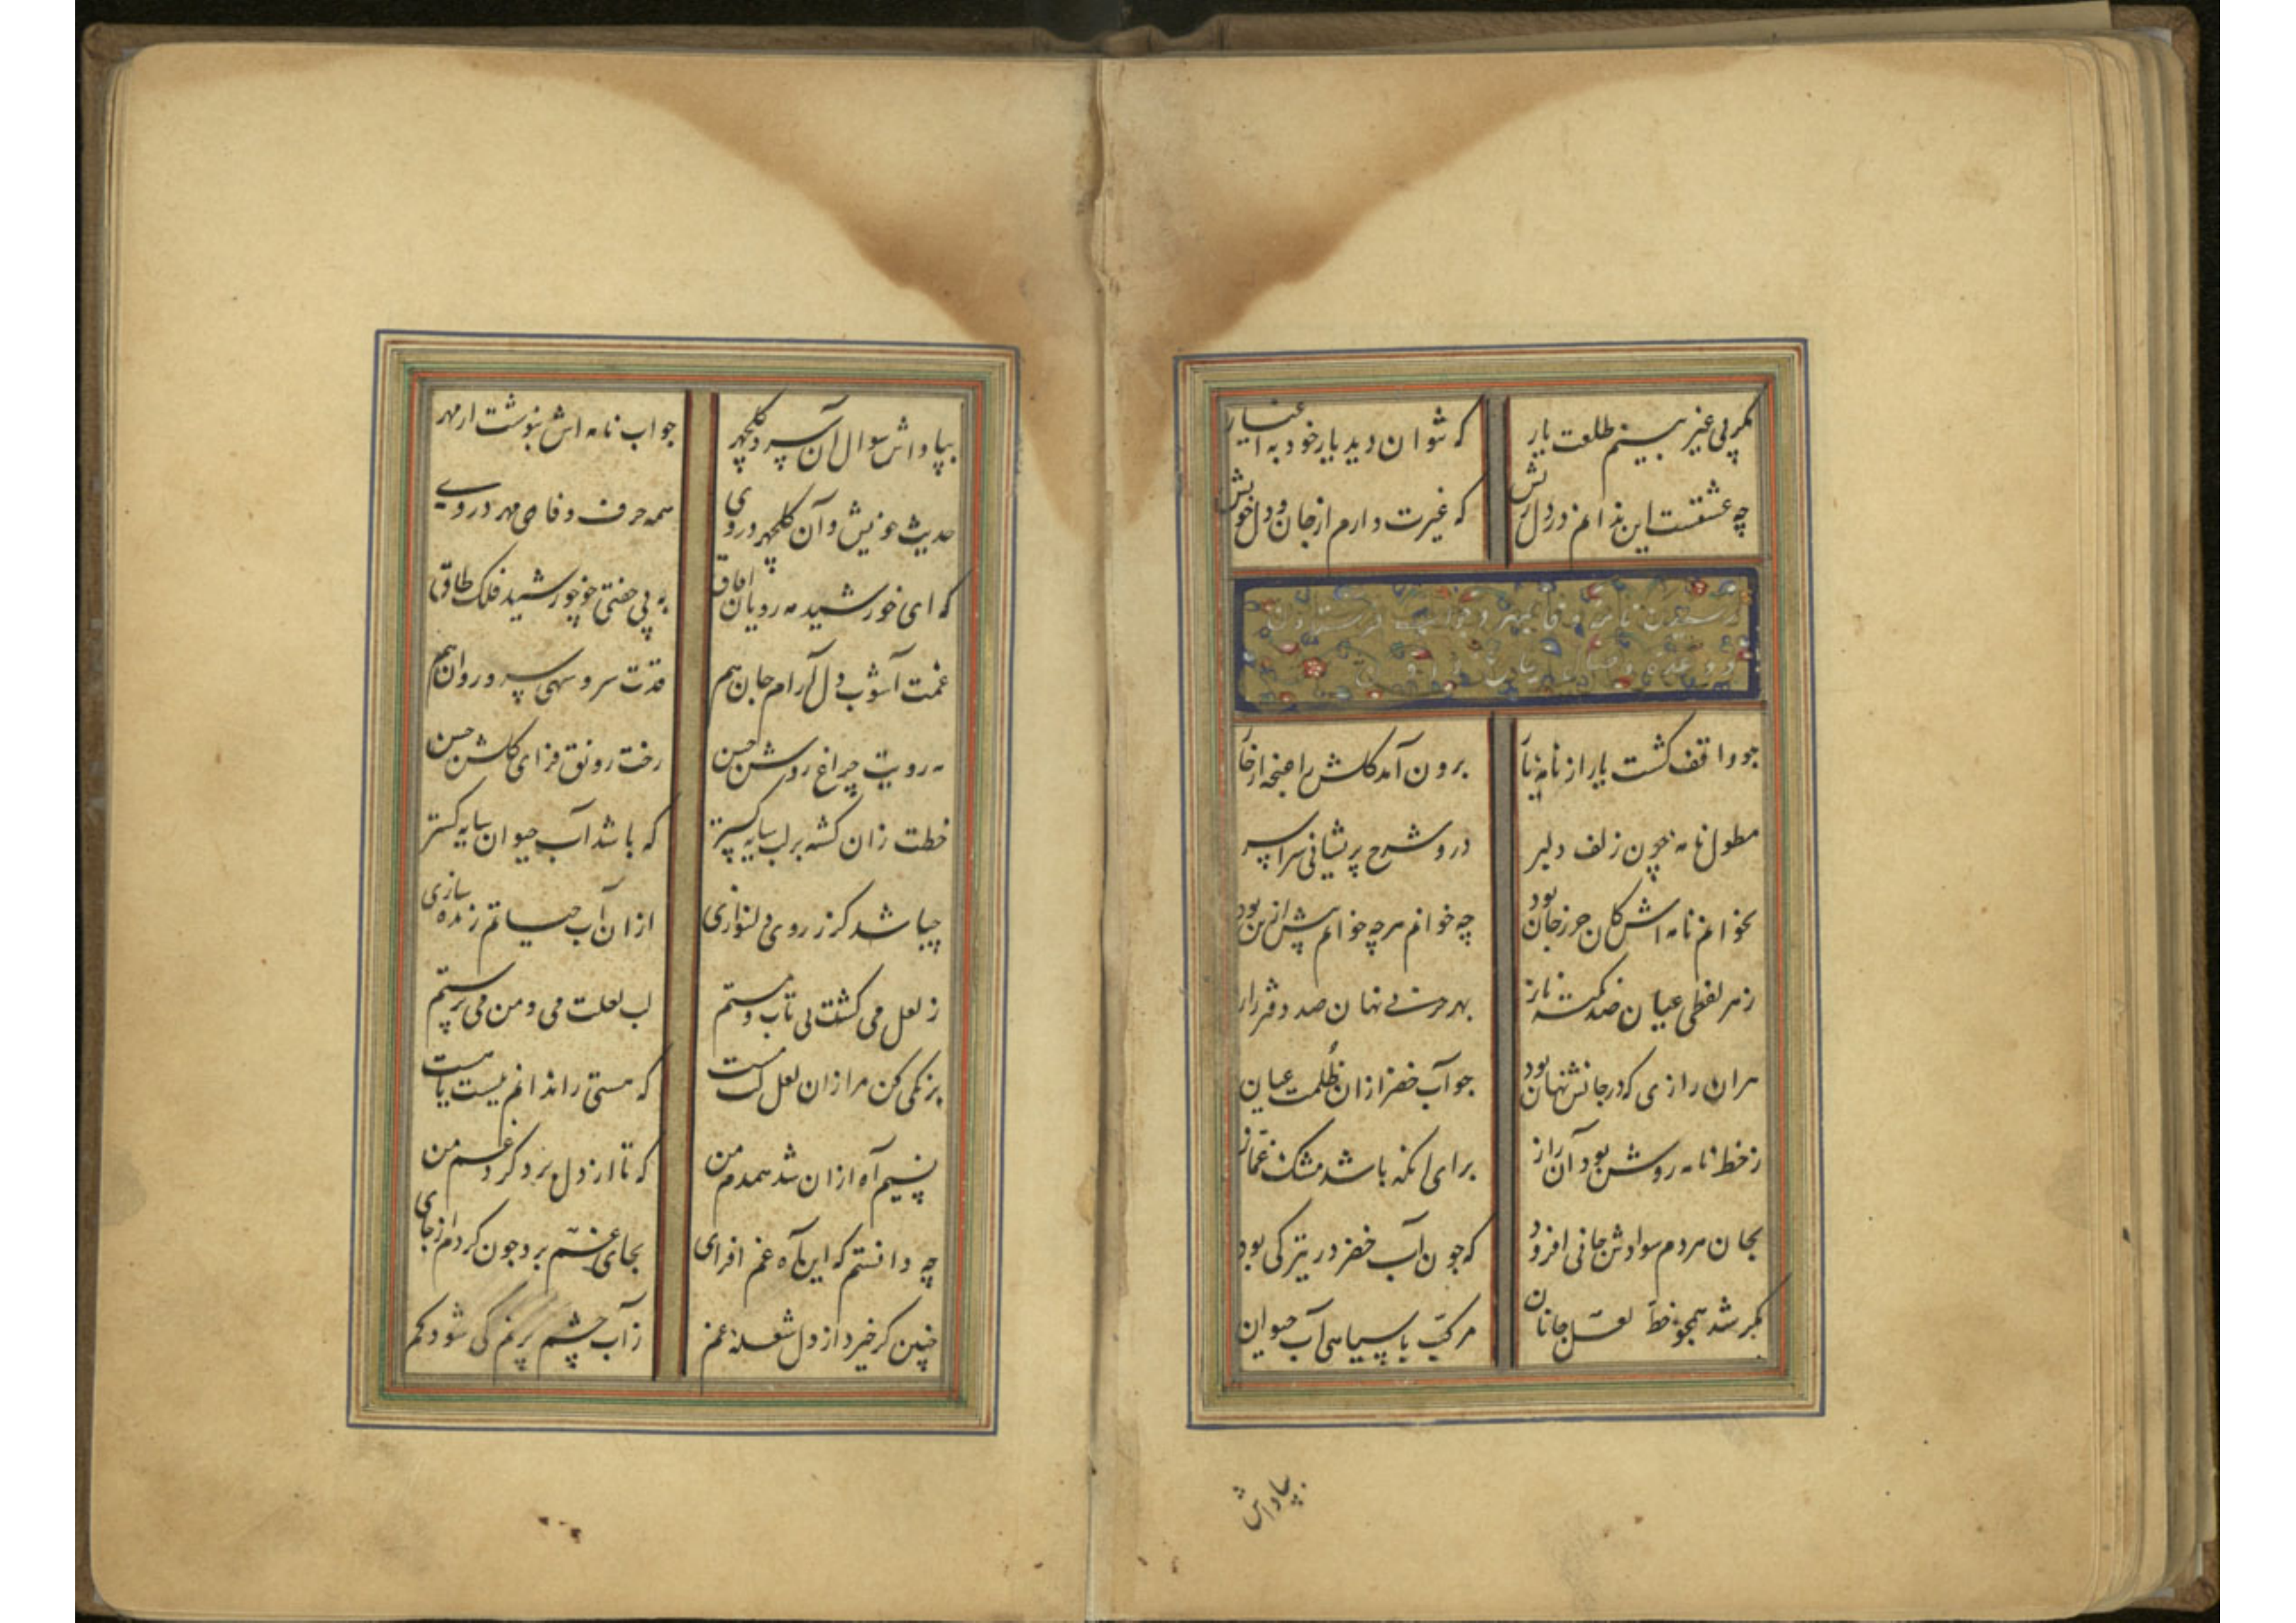 مگر بی غیر بینم طلعت یار که نتوان دید یار خود به اغیار
چه عشقست این ندانم در دل ریش که غیرت دارم از جان و دل خویش
جو واقف گشت یار از نامه برون آمد گلش را غنچه از
مطول نامه چون زلف دلبر درو شرح پریشانی سراسر
بخوانم نامه اش کان حرز جان بود چه خوانم هرچه خوانم بیش ازین بود
زهر لفظی عیان صد نکته ناز بهر حرفی نهان صد دفتر راز
هران رازی که در جانش نهان بود جو آب خضر ازان ظلمت عیان
ز خط نامه روشن بود آن راز برای انکه باشد مشک غماز
بجان مردم سوادش جانی افزود که جون آب خضر در تیرکی بود
مگر شد همجو خط لعل جانان مرکب با سیاهی آب حیوان
بپاداش
بپاداش سوال آن سرو گلچهر جواب نامه اش بنوشت از مهر
حدیث عز نیش و آن گلچهر در وی همه حرف وفا و مهر در وی
که ای خورشید مه رویان افاق به بی جفتی جو خورشید فلک طاق
غمت آشوب دل آرام جان هم قدت سرو سهی سرو روان هم
مه رویت چراغ روشن حسن رخت رونق فزای گلشن حسن
خطت زان گشته بر لب سایه گستر که باشد آب حیوان سایه گستر
چه باشد کز روی دلنوازی ازان آب حیاتم زنده سازی
ز لعل می گشت بی تاب و مستم لب لعلت می و من می پرستم
به نکی کن مرا زان لعل لب مست که هستی را ندانم نیست یا هست
نسیم آه ازان شد همدم من که تا از دل برد گرد غم من
چه دانستم که این آه غم افزای بجای غم برد جون گردم از جای
چنین کز خیزد از دل شعله غم ز آب چشم پرنم کی شود کم